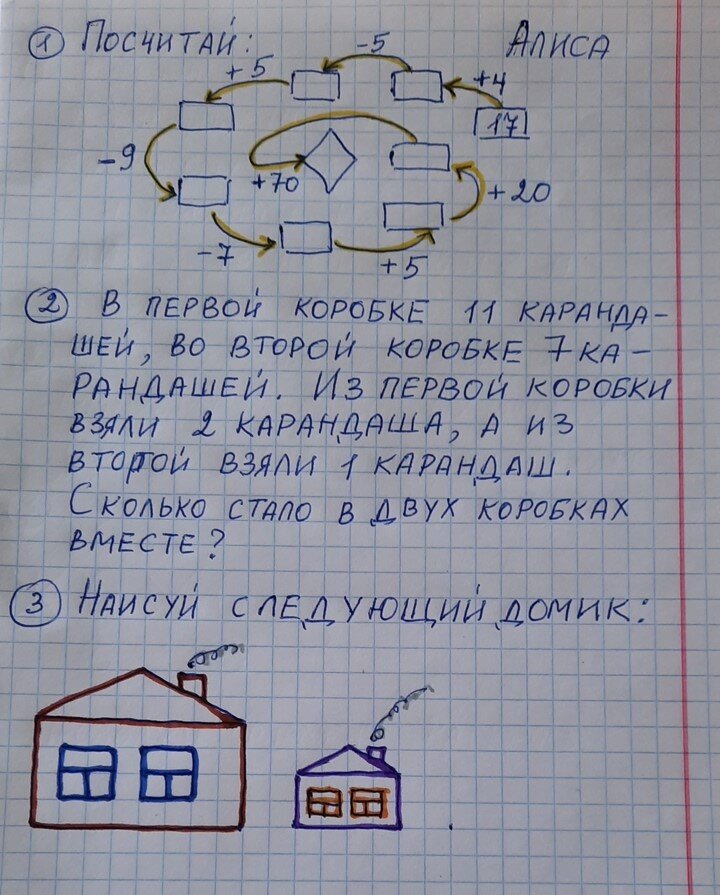 1 Посчитай: Алиса
+4
-5
+5
17
-9
+70
+20
-7
+5
2 В первой коробке 11 каранда-
шей, во второй коробке 7 ка-
рандашей. Из первой коробки
взяли 2 карандаша, а из
второй взяли 1 карандаш.
Сколько стало в двух коробках
вместе?
3 Наисуй следующий домик: